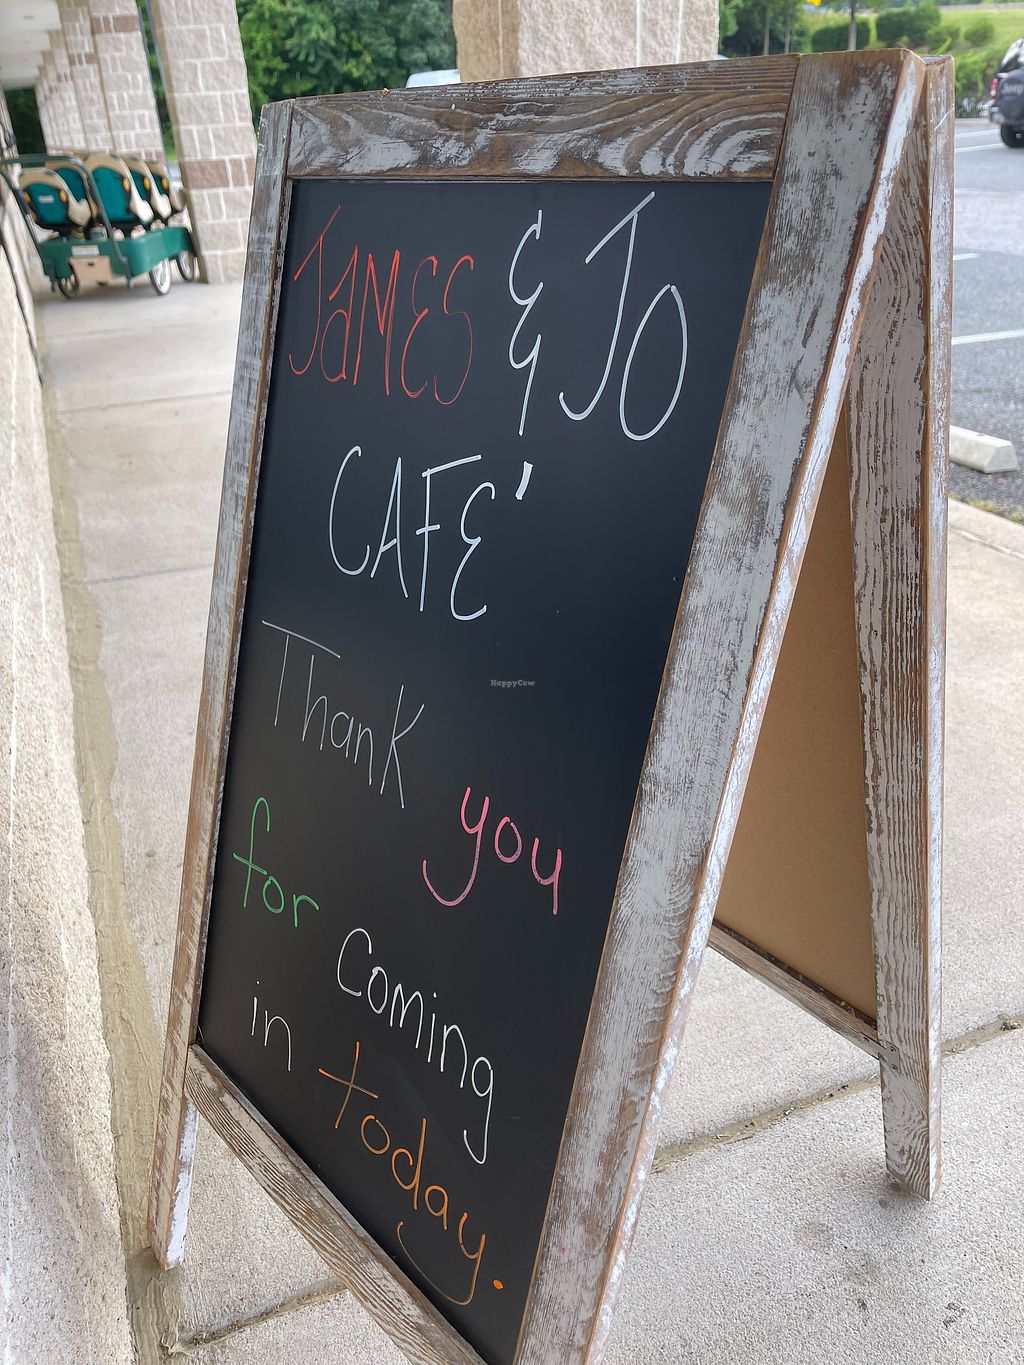 JAMES & JO
CAFE'
Thank you
for Coming
in today.
HappyCow